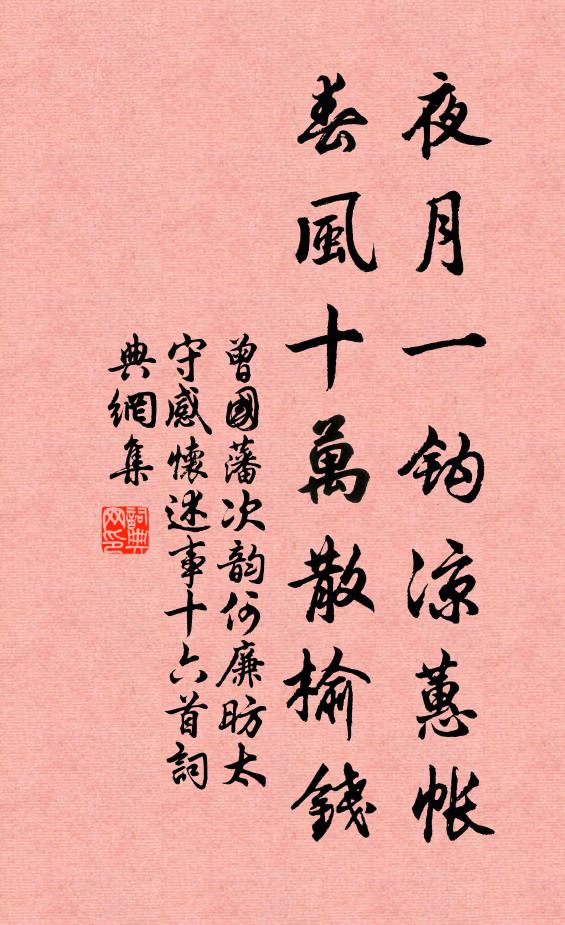 夜月一鈎涼蕙帳
春風十萬散榆錢
曾國藩次韵何廉昉太
守感懷述事十六首詞
典網集
詞典
网印